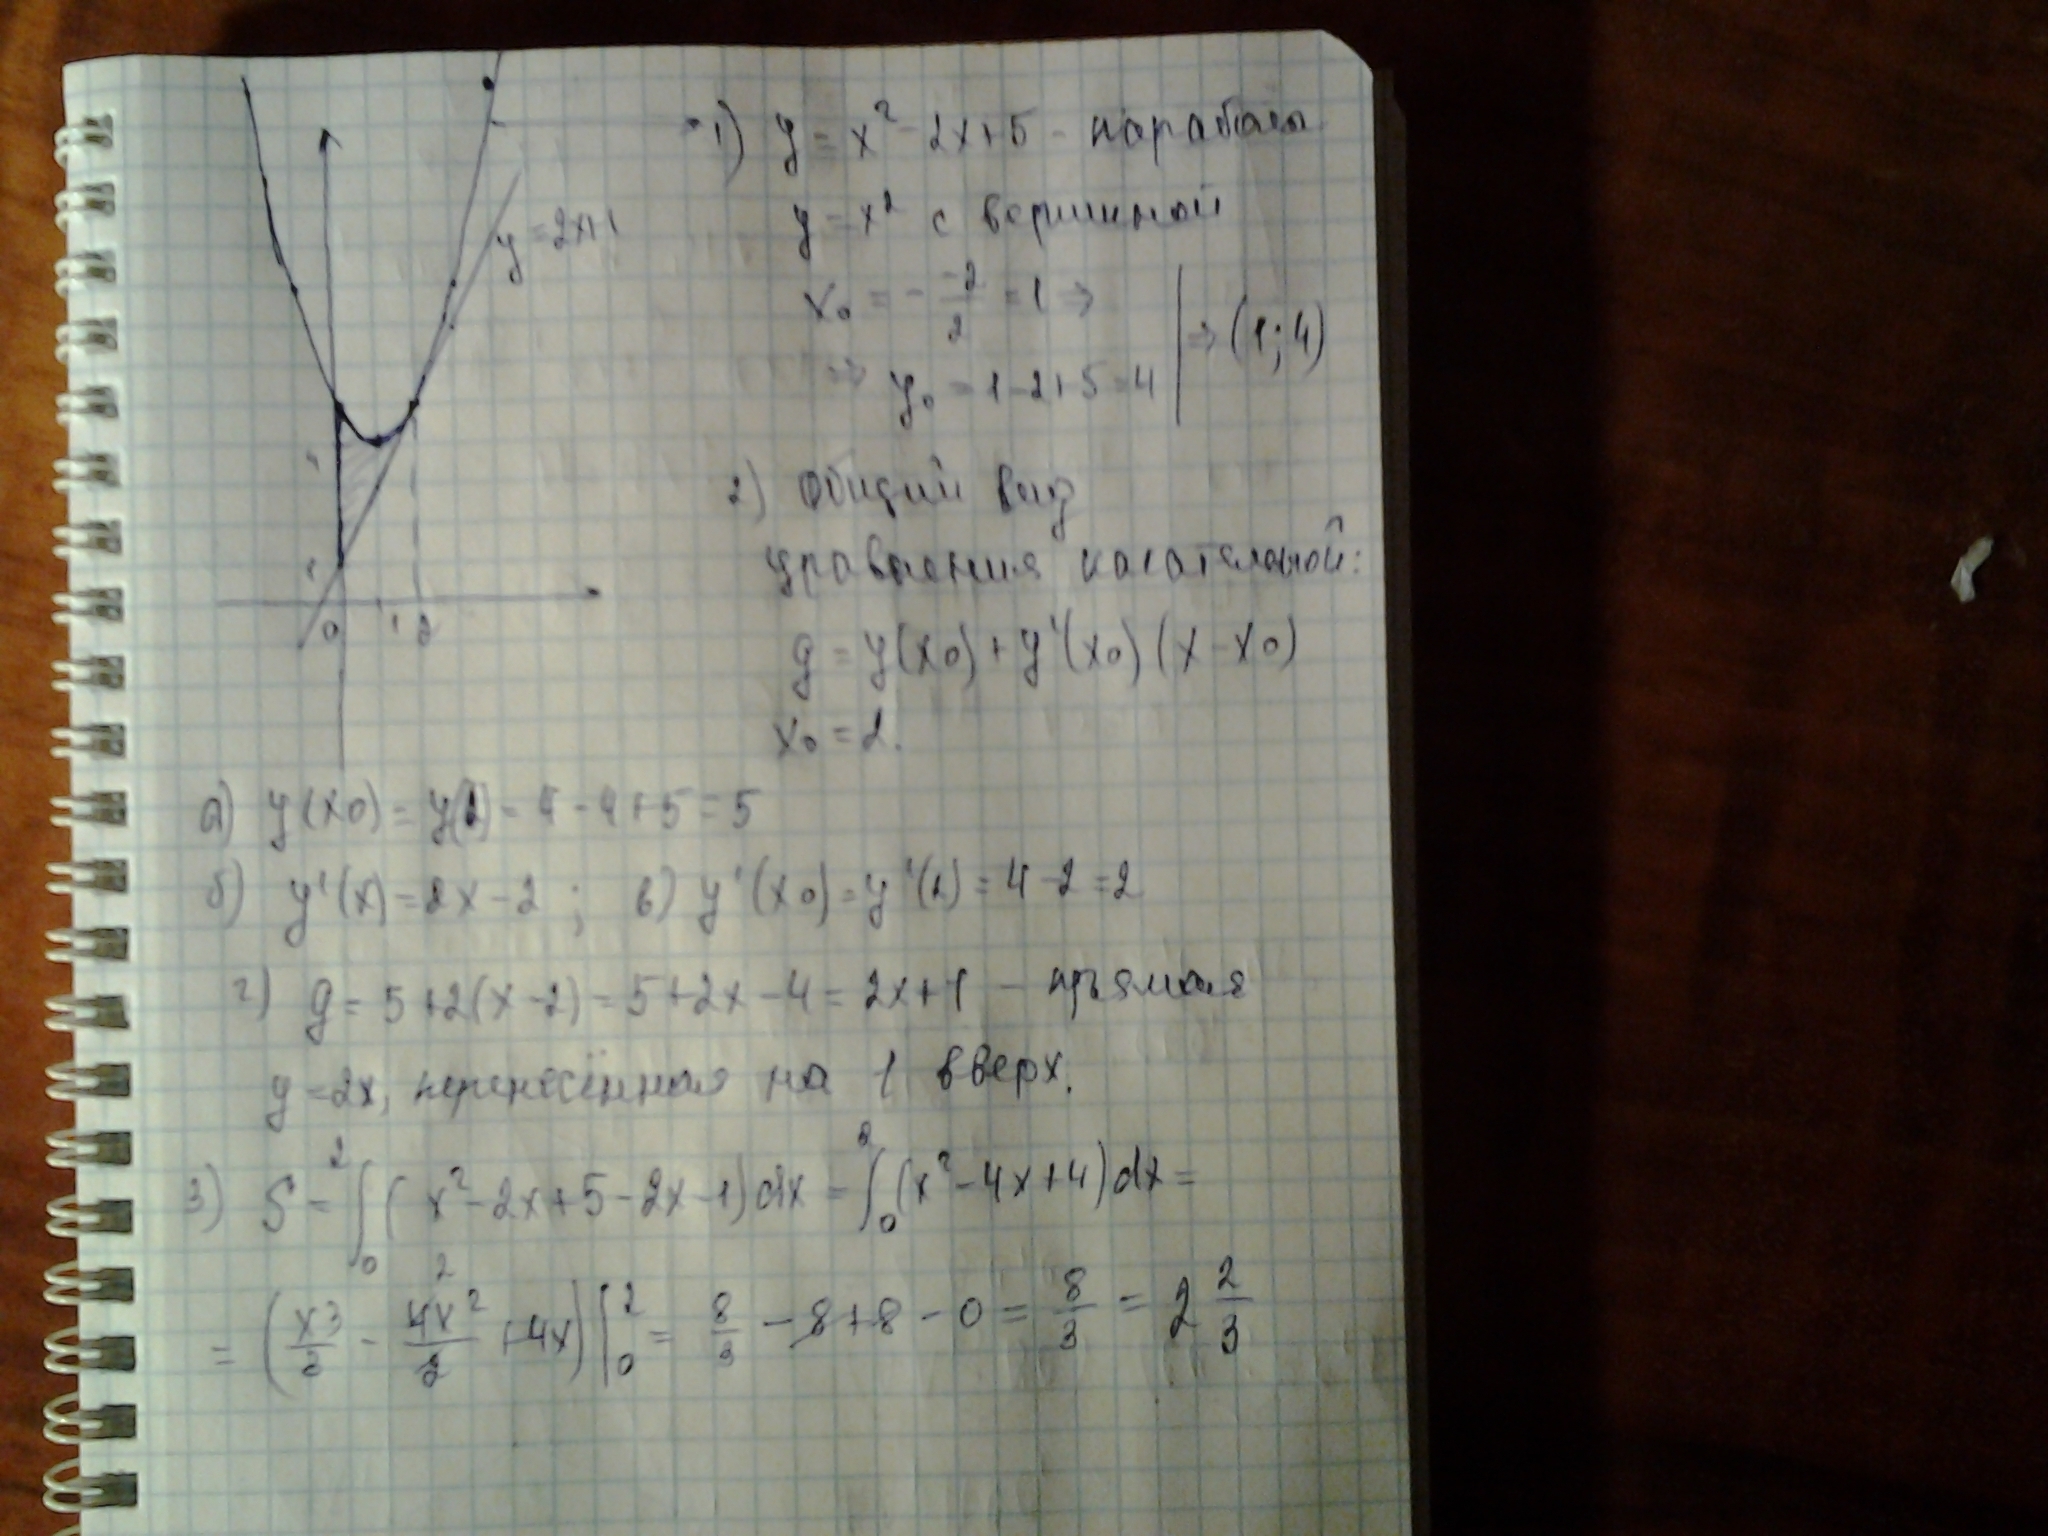 1) y = x² - 2x + 5 - парабола
y = x² с вершиной
x₀ = - -2/2 = 1 ⇒
⇒ y₀ = 1 - 2 + 5 = 4 | ⇒ (1; 4)
y = 2x+1
1
0 1 2
2) Общий вид
уравнения касательной:
y = y(x₀) + y'(x₀)(x - x₀)
x₀ = 2.
а) y(x₀) = y(2) = 4 - 4 + 5 = 5
б) y'(x) = 2x - 2 ; в) y'(x₀) = y'(2) = 4 - 2 = 2
г) y = 5 + 2(x - 2) = 5 + 2x - 4 = 2x + 1 - прямая
y = 2x, перенесённая на 1 вверх.
3) S = ∫₀² (x² - 2x + 5 - 2x - 1) dx = ∫₀² (x² - 4x + 4) dx =
= (x³/3 - 4x²/2 + 4x) |₀² = 8/3 - 8 + 8 - 0 = 8/3 = 2 2/3